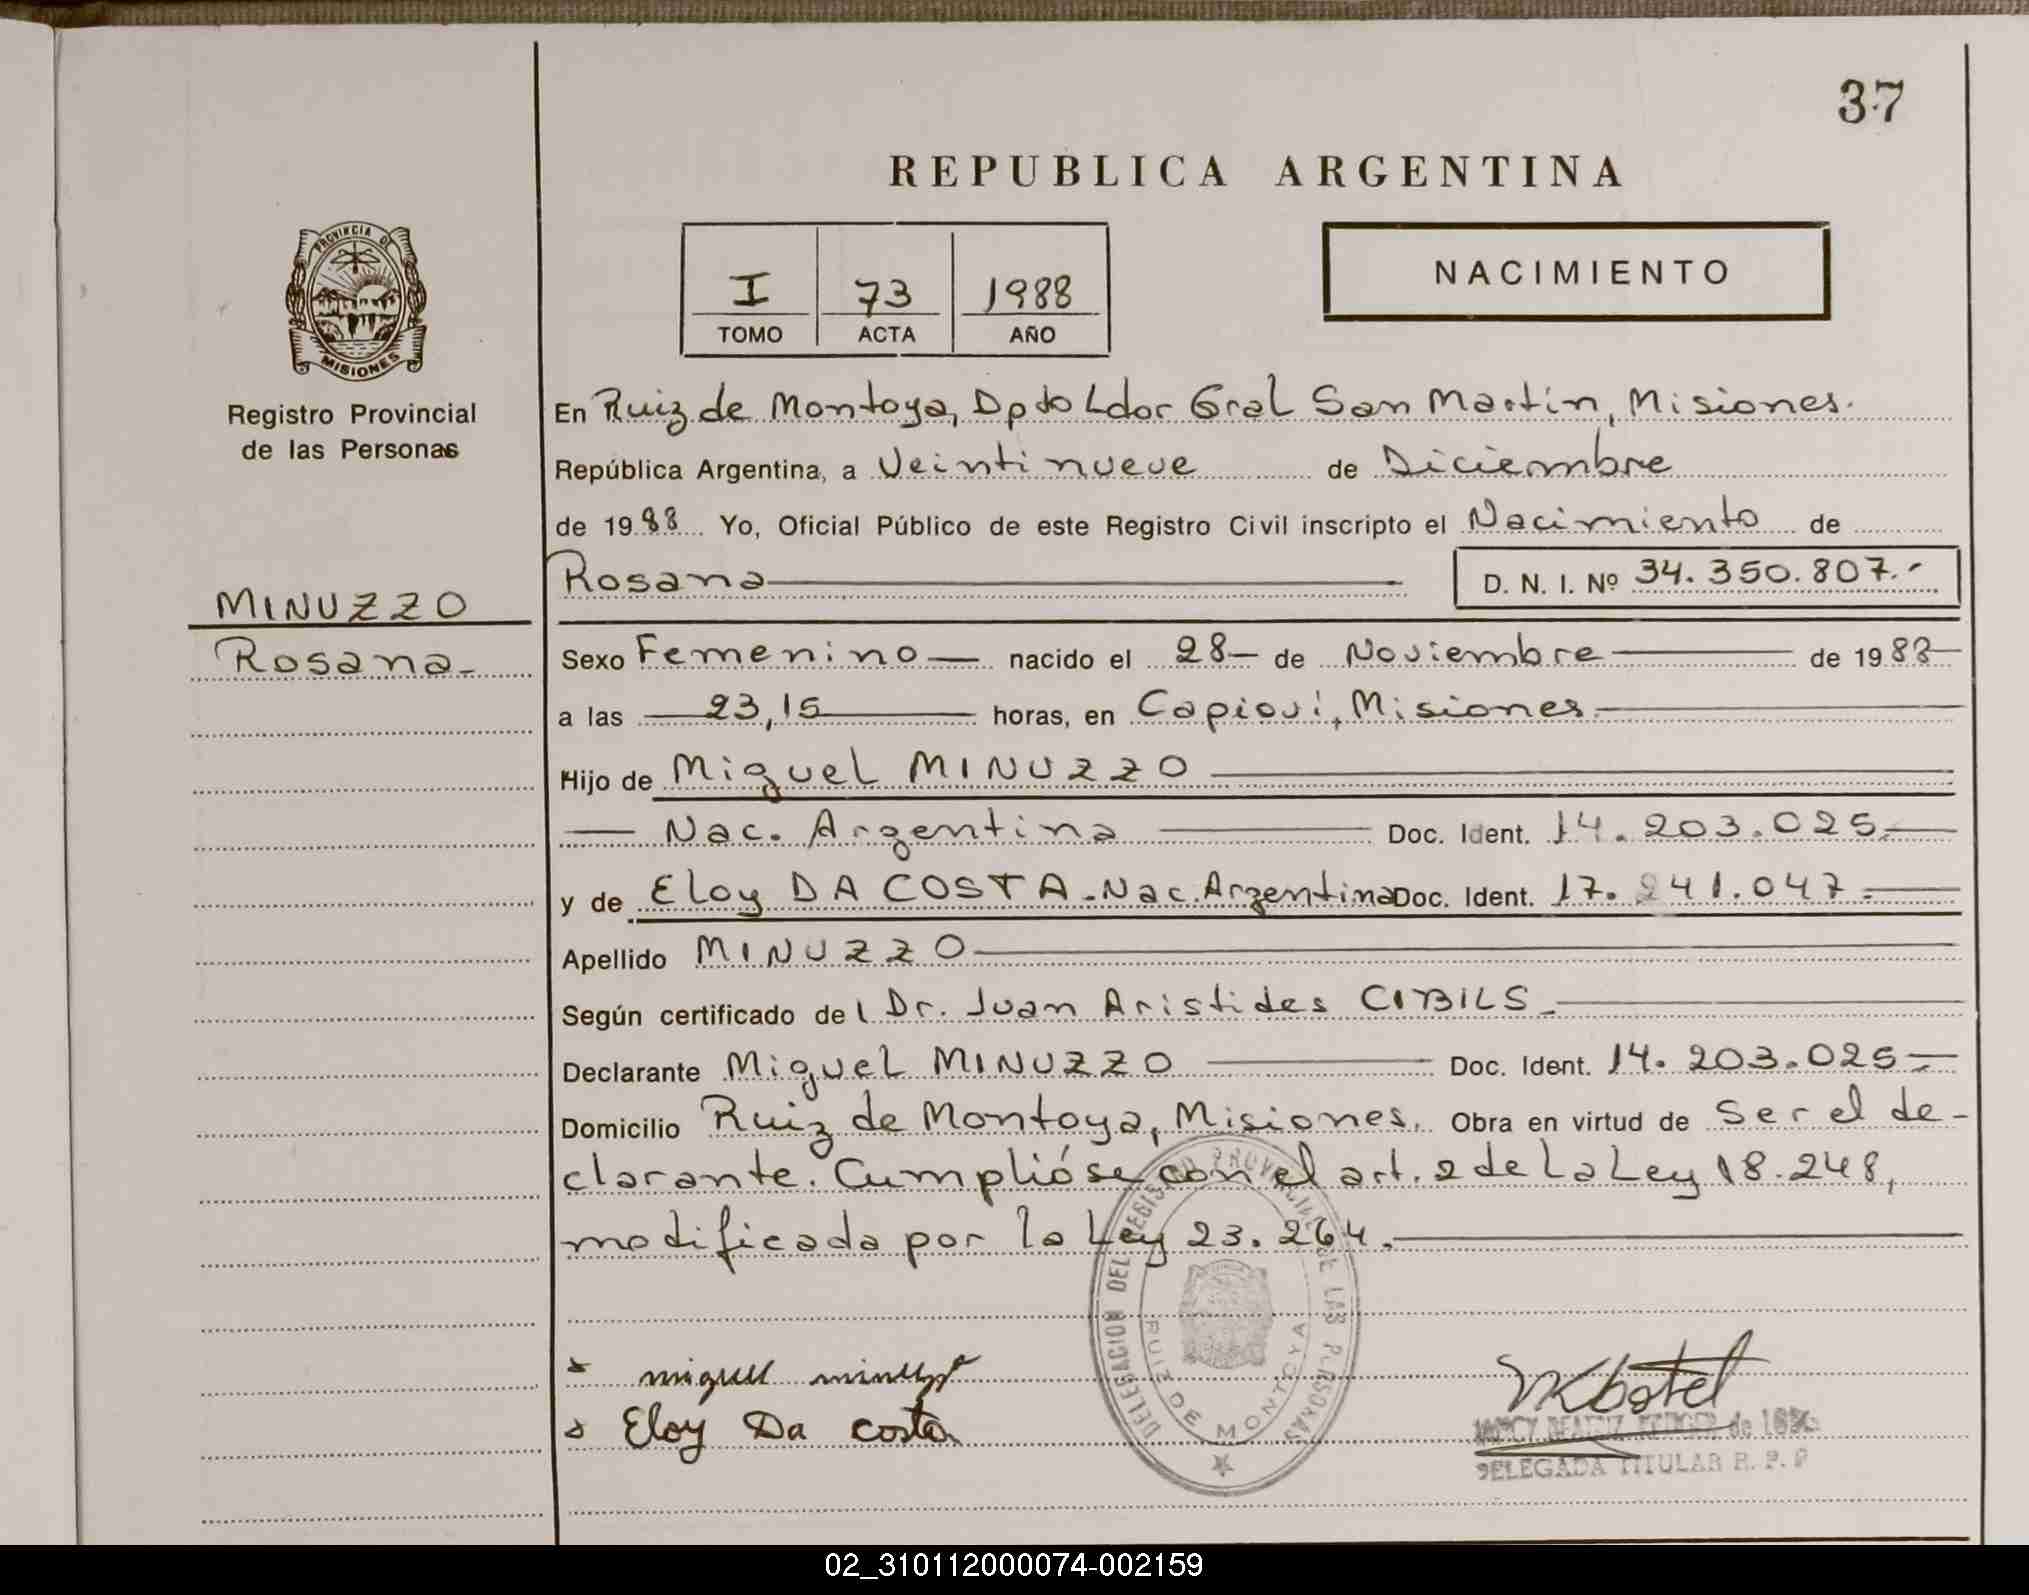 37
REPUBLICA ARGENTINA
PROVINCIA DE
MISIONES
Registro Provincial
de las Personas
I 73 1988
TOMO ACTA AÑO
NACIMIENTO
En Ruiz de Montoya, Dpto Ldor Gral San Martín, Misiones.
República Argentina, a Veintinueve de Diciembre
de 1988 Yo, Oficial Público de este Registro Civil inscripto el Nacimiento de
Rosana D. N. I. Nº 34.350.807.-
MINUZZO
Rosana-
Sexo Femenino nacido el 28 de Noviembre de 1988
a las 23,15 horas, en Capioví, Misiones.
Hijo de Miguel MINUZZO
Nac. Argentina Doc. Ident. 14.203.025.
y de Eloy DA COSTA.Nac.Argentina Doc. Ident. 17.241.047.
Apellido MINUZZO
Según certificado del Dr. Juan Aristides CIBILS.
Declarante Miguel MINUZZO Doc. Ident. 14.203.025
Domicilio Ruiz de Montoya, Misiones. Obra en virtud de Ser el de-
clarante. Cumplióse con el art. 2 de La Ley 18.248,
modificada por la Ley 23.264.
DELEGACION DEL REGISTRO PROVINCIAL DE LAS PERSONAS
RUIZ DE MONTOYA
miguel minuzzo
Eloy Da costa
NANCY BEATRIZ de
DELEGADA TITULAR R. P. P
02_310112000074-002159